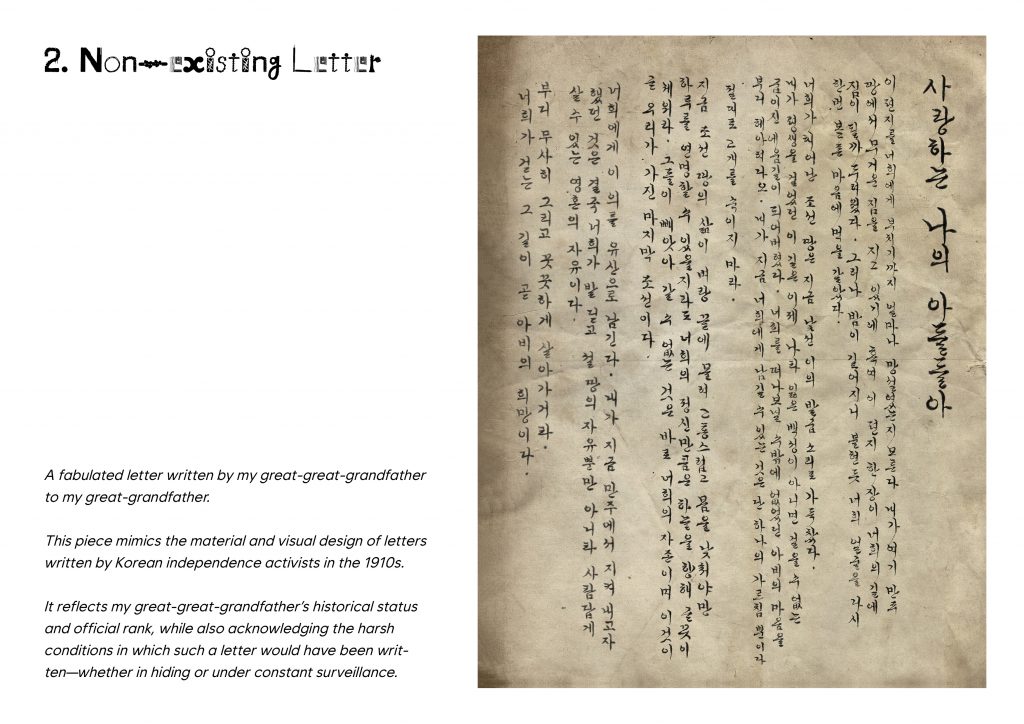 2. Non-existing Letter
A fabulated letter written by my great-great-grandfather
to my great-grandfather.
This piece mimics the material and visual design of letters
written by Korean independence activists in the 1910s.
It reflects my great-great-grandfather's historical status
and official rank, while also acknowledging the harsh
conditions in which such a letter would have been writ-
ten—whether in hiding or under constant surveillance.
사랑하는 나의 아들들아
이 편지를 너희에게 부치기까지 얼마나 망설였는지 모른다. 내가 여기 만주
땅에서 무거운 짐을 지고 있기에 혹여 이 편지 한 장이 너희의 길에
짐이 될까 두려웠다. 그러나 밤이 깊어지니 불현듯 너희 얼굴을 다시
한번 마음에 먹을 갈았다.
너희가 태어난 조선 땅은 지금 낯선 이의 발굽 소리로 가득 찼다.
내가 평생을 걸었던 이 길은 이제 나라 잃은 백성이 아니면 걸을 수 없는
굽이진 되어버렸다. 너희를 떠나보낼 수밖에 없었던 아비의 마음을
부디 헤아려다오. 내가 지금 너희에게 남길 수 있는 것은 단 하나의 가르침 뿐이다
절대로 고개를 숙이지 마라.
지금 조선 땅의 삶이 벼랑 끝에 몰려 고통스럽고 몸을 낮춰야만
하루를 연명할 수 있을지라도 너희의 정신만큼은 하늘을 향해 곧꼿이
세워라. 그들이 빼앗아 갈 수 없는 것은 바로 너희의 자존이며 이것이
곧 우리가 가진 마지막 조선이다.
너희에게 이 의를 유산으로 남긴다. 내가 지금 만주에서 지켜 내고자
했던 것은 결국 너희가 발 딛고 설 땅의 자유뿐만 아니라 사람답게
살 수 있는 영혼의 자유이다.
부디 무사히 그리고 꼿꼿하게 살아가거라.
너희가 걷는 그 길이 곧 아비의 희망이다.